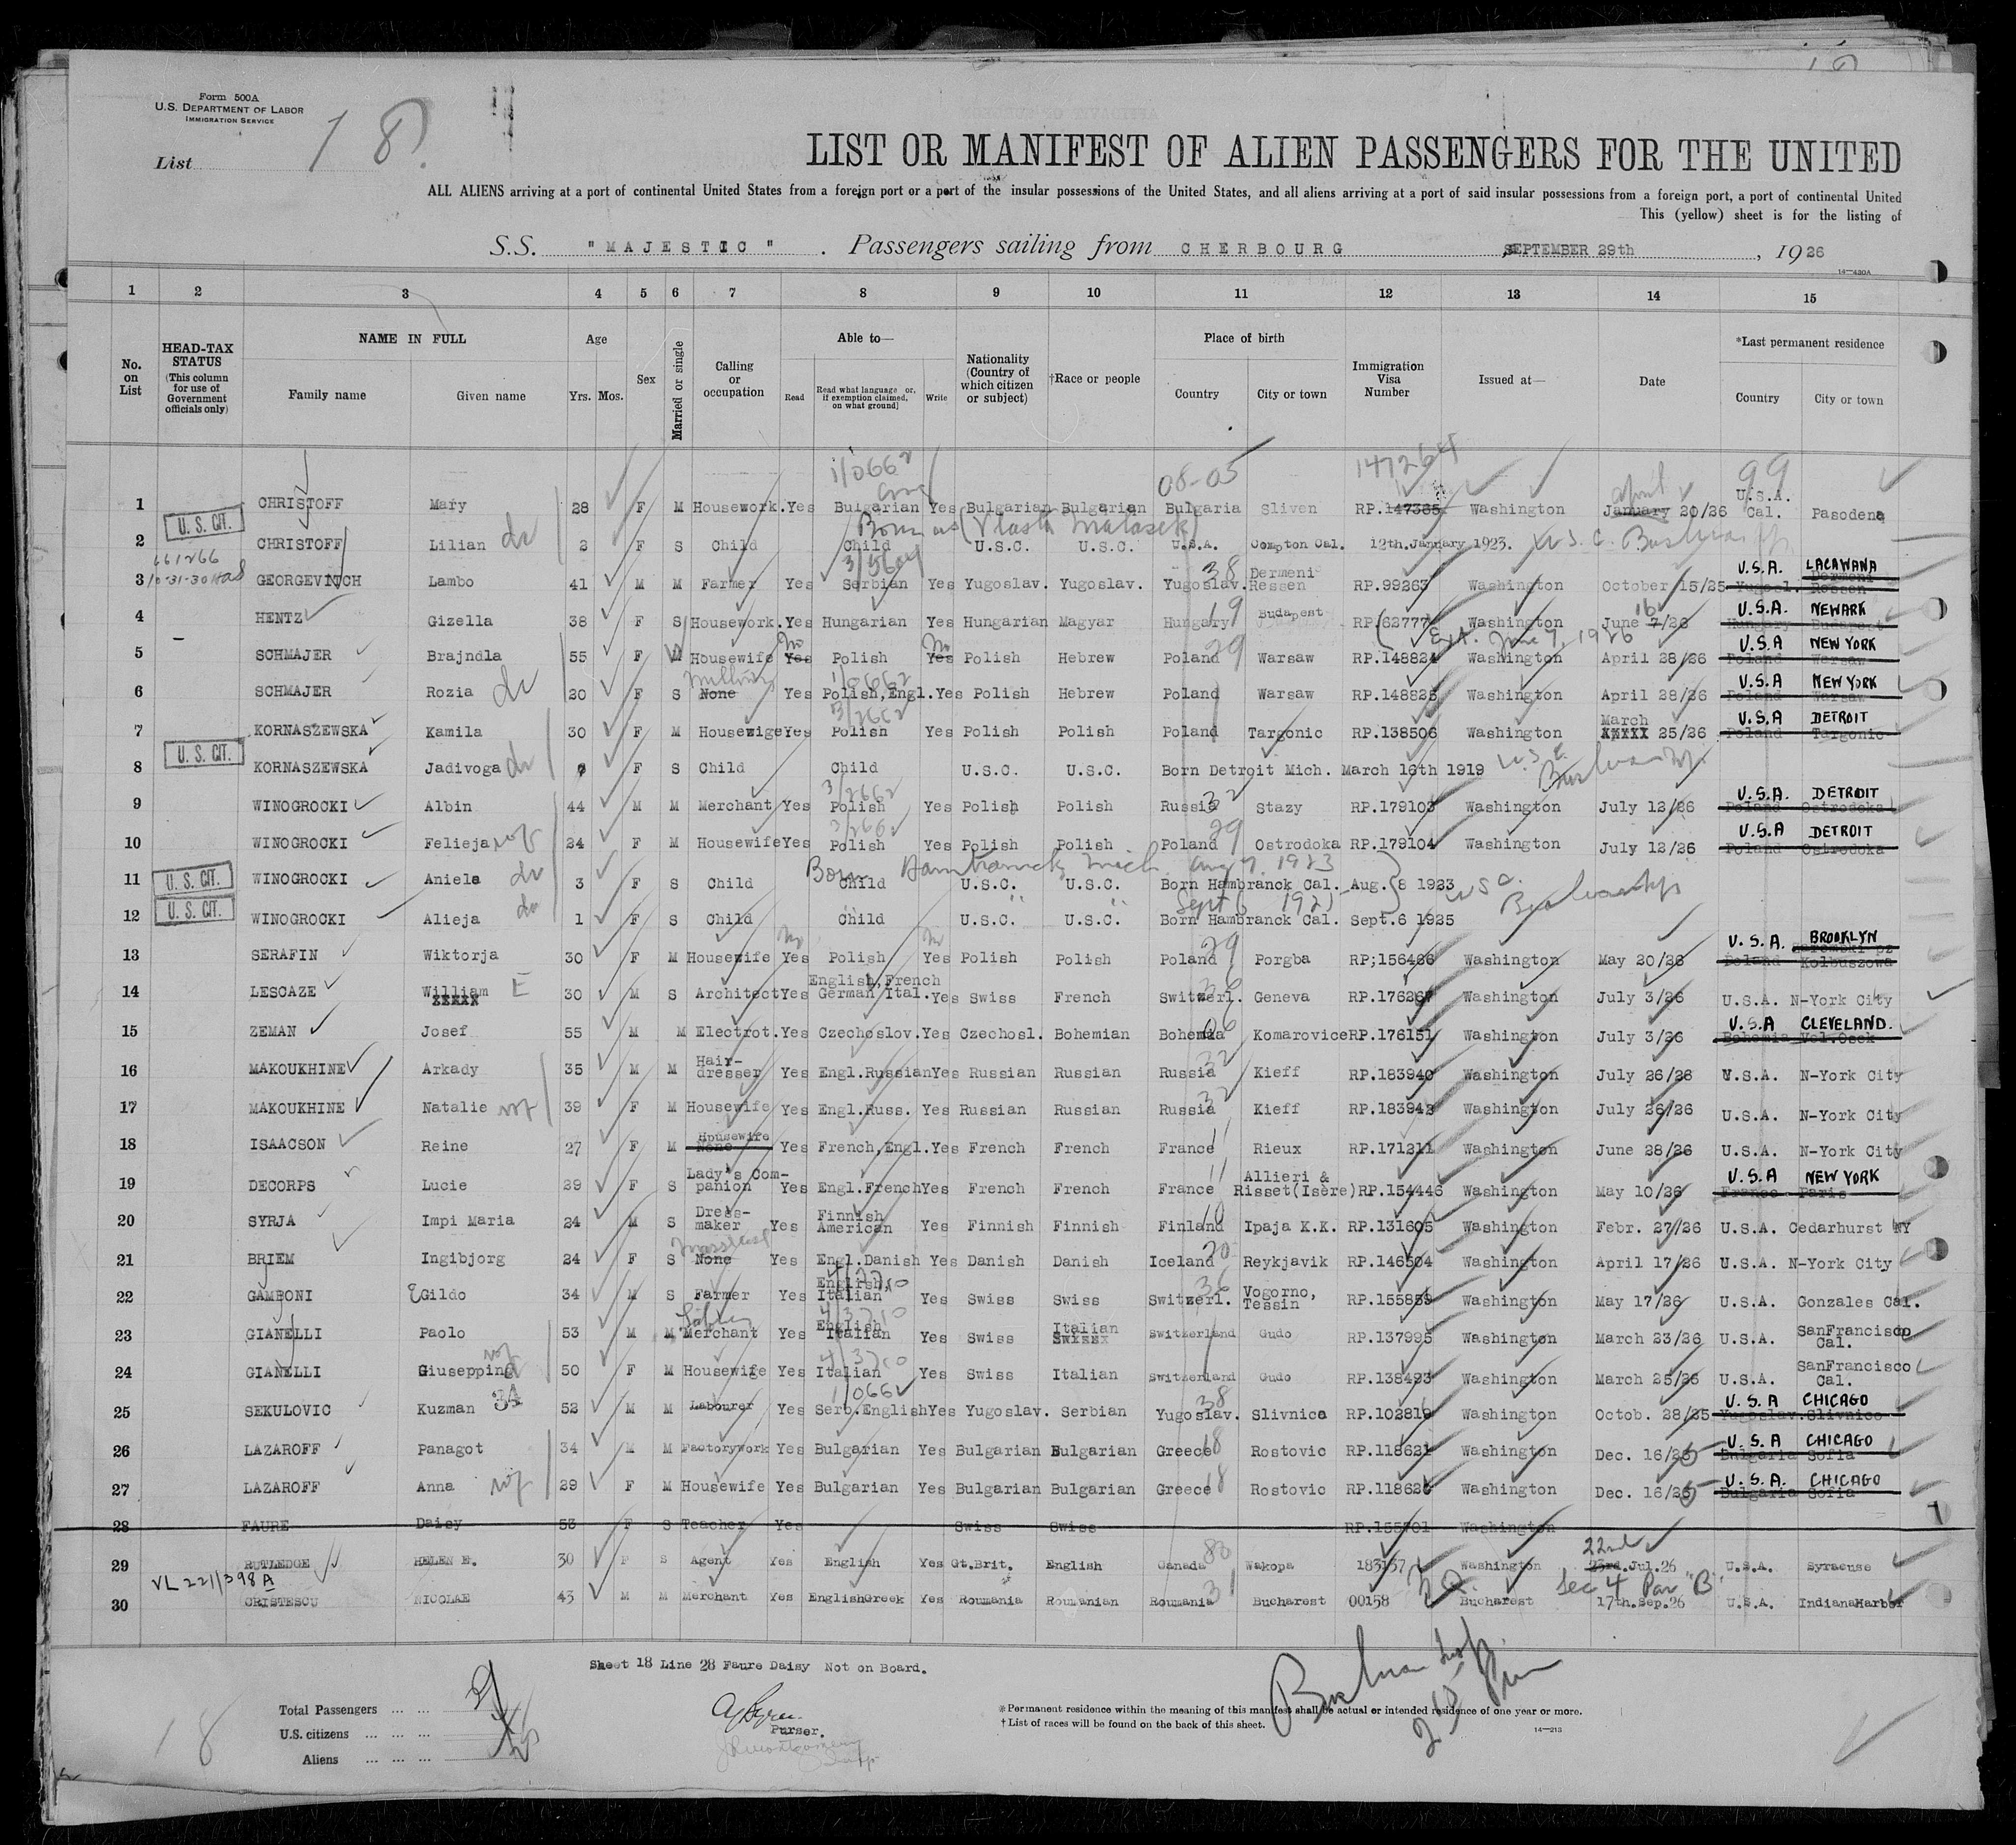 Form 500A
U.S. DEPARTMENT OF LABOR
IMMIGRATION SERVICE
List 18
LIST OR MANIFEST OF ALIEN PASSENGERS FOR THE UNITED
ALL ALIENS arriving at a port of continental United States from a foreign port or a port of the insular possessions of the United States, and all aliens arriving at a port of said insular possessions from a foreign port, a port of continental United
This (yellow) sheet is for the listing of
S.S. "MAJESTIC". Passengers sailing from CHERBOURG, SEPTEMBER 29th, 1926
14—430A
1 2 3 4 5 6 7 8 9 10 11 12 13 14 15
No. on List
HEAD-TAX STATUS (This column for use of Government officials only)
NAME IN FULL
Family name Given name
Age
Yrs. Mos.
Sex
Married or single
Calling or occupation
Able to—
Read Read what language or, if exemption claimed, on what ground] Write
Nationality (Country of which citizen or subject)
†Race or people
Place of birth
Country City or town
Immigration Visa Number
Issued at—
Date
*Last permanent residence
Country City or town
1/0662 08-05 147264 99
1 CHRISTOFF Mary 28 F M Housework. Yes Bulgarian Yes Bulgarian Bulgarian Bulgaria Sliven RP.147365 Washington April January 20/26 U.S.A. Cal. Pasodena
U. S. CIT.
2 CHRISTOFF Lilian 2 F S Child Child U.S.C. U.S.C. U.S.A. Compton Cal. 12th.January 1923.
3 GEORGEVITCH Lambo 41 M M Farmer Yes Serbian Yes Yugoslav. Yugoslav. Yugoslav. 38 Dermeni Ressen RP.99263 Washington October 15/25 U.S.A. LACAWANA Yugosl. Dermeni Ressen
4 HENTZ Gizella 38 F S Housework. Yes Hungarian Yes Hungarian Magyar Hungary 19 Budapest RP(62777 Washington June 16 7/26 U.S.A. NEWARK Hungary Budapest
Ext. June 7, 1926
5 SCHMAJER Brajndla 55 F M Housewife No Yes Polish No Yes Polish Hebrew Poland 29 Warsaw RP.148824 Washington April 28/26 U.S.A NEW YORK Poland Warsaw
6 SCHMAJER Rozia 20 F S None Yes Polish,Engl. Yes Polish Hebrew Poland Warsaw RP.148825 Washington April 28/26 U.S.A NEW YORK Poland Warsaw
7 KORNASZEWSKA Kamila 30 F M Housewige Yes 3/2662 Polish Yes Polish Polish Poland Targonic RP.138506 Washington March XXXXX 25/26 U.S.A DETROIT Poland Targonic
U. S. CIT.
8 KORNASZEWSKA Jadivoga 7 F S Child Child U.S.C. U.S.C. Born Detroit Mich. March 16th 1919
9 WINOGROCKI Albin 44 M M Merchant Yes 3/2662 Polish Yes Polish Polish Russia 32 Stazy RP.179103 Washington July 12/26 U.S.A. DETROIT Poland Ostrodoka
10 WINOGROCKI Felieja 24 F M Housewife Yes Polish Yes Polish Polish Poland 29 Ostrodoka RP.179104 Washington July 12/26 U.S.A DETROIT Poland Ostrodoka
Born Hamtramck, Mich. Aug 7, 1923
U. S. CIT.
11 WINOGROCKI Aniela 3 F S Child Child U.S.C. U.S.C. Born Hambranck Cal. Aug. 8 1923
U. S. CIT.
12 WINOGROCKI Alieja 1 F S Child Child U.S.C. U.S.C. Born Hambranck Cal. Sept.6 1925
13 SERAFIN Wiktorja 30 F M Housewife No Yes Polish No Yes Polish Polish Poland 29 Porgba RP;156466 Washington May 20/26 U.S.A. BROOKLYN Poland Kolbuszowa
14 LESCAZE William XXXXX E 30 M S Architect Yes English,French German Ital. Yes Swiss French Switzerl. Geneva RP.176267 Washington July 3/26 U.S.A. N-York City
15 ZEMAN Josef 55 M M Electrot. Yes Czechoslov. Yes Czechosl. Bohemian Bohemia 06 Komarovice RP.176151 Washington July 3/26 U.S.A CLEVELAND. Bohemia Vel.Osek
16 MAKOUKHINE Arkady 35 M M Hair-dresser Yes Engl.Russian Yes Russian Russian Russia 32 Kieff RP.183940 Washington July 26/26 U.S.A. N-York City
17 MAKOUKHINE Natalie 39 F M Housewife Yes Engl.Russ. Yes Russian Russian Russia 32 Kieff RP.183942 Washington July 26/26 U.S.A. N-York City
18 ISAACSON Reine 27 F M Housewife None Yes French,Engl. Yes French French France 11 Rieux RP.171211 Washington June 28/26 U.S.A. N-York City
19 DECORPS Lucie 29 F S Lady's Com-panion Yes Engl.French Yes French French France 11 Allieri & Risset(Isère) RP.154446 Washington May 10/26 U.S.A NEW YORK France Paris
20 SYRJA Impi Maria 24 M S Dress-maker Yes Finnish American Yes Finnish Finnish Finland 10 Ipaja K.K. RP.131605 Washington Febr. 27/26 U.S.A. Cedarhurst NY
21 BRIEM Ingibjorg 24 F S None Yes Engl.Danish Yes Danish Danish Iceland 20 Reykjavik RP.146504 Washington April 17/26 U.S.A. N-York City
22 GAMBONI EGildo 34 M S Farmer Yes English, Italian Yes Swiss Swiss Switzerl. 36 Vogorno, Tessin RP.155859 Washington May 17/26 U.S.A. Gonzales Cal.
23 GIANELLI Paolo 53 M M Merchant Yes English Italian Yes Swiss Italian SWXXXX Switzerland Gudo RP.137995 Washington March 23/26 U.S.A. SanFrancisco Cal.
24 GIANELLI Giuseppina 50 F M Housewife Yes Italian Yes Swiss Italian Switzerland Gudo RP.138493 Washington March 25/26 U.S.A. SanFrancisco Cal.
25 SEKULOVIC Kuzman 52 M M Labourer Yes 1/0662 Serb.English Yes Yugoslav. Serbian Yugoslav. 38 Slivnica RP.102819 Washington Octob. 28/25 U.S.A CHICAGO Yugoslav. Slivnico
26 LAZAROFF Panagot 34 M M Factorywork Yes Bulgarian Yes Bulgarian Bulgarian Greece 18 Rostovic RP.118621 Washington Dec. 16/25 U.S.A CHICAGO Bulgaria Sofia
27 LAZAROFF Anna 29 F M Housewife Yes Bulgarian Yes Bulgarian Bulgarian Greece 18 Rostovic RP.118626 Washington Dec. 16/25 U.S.A. CHICAGO Bulgaria Sofia
28 FAURE Daisy 53 F S Teacher Yes Swiss Swiss RP.155701 Washington
29 RUTLEDGE HELEN E. 30 F S Agent Yes English Yes Gt.Brit. English Canada 80 Wakopa 183137 Washington 22nd 23rd.Jul.26 U.S.A. Syracuse
VL 221/398A Sec 4 Par "B"
30 CRISTESCU NICOLAE 43 M M Merchant Yes EnglishGreek Yes Roumania Roumanian Roumania 31 Bucharest 00158 Bucharest 17th.Sep.26 U.S.A. IndianaHarbor
Sheet 18 Line 28 Faure Daisy Not on Board.
Total Passengers
U.S. citizens
Aliens
Purser.
18
*Permanent residence within the meaning of this manifest shall be actual or intended residence of one year or more.
†List of races will be found on the back of this sheet.
14—213